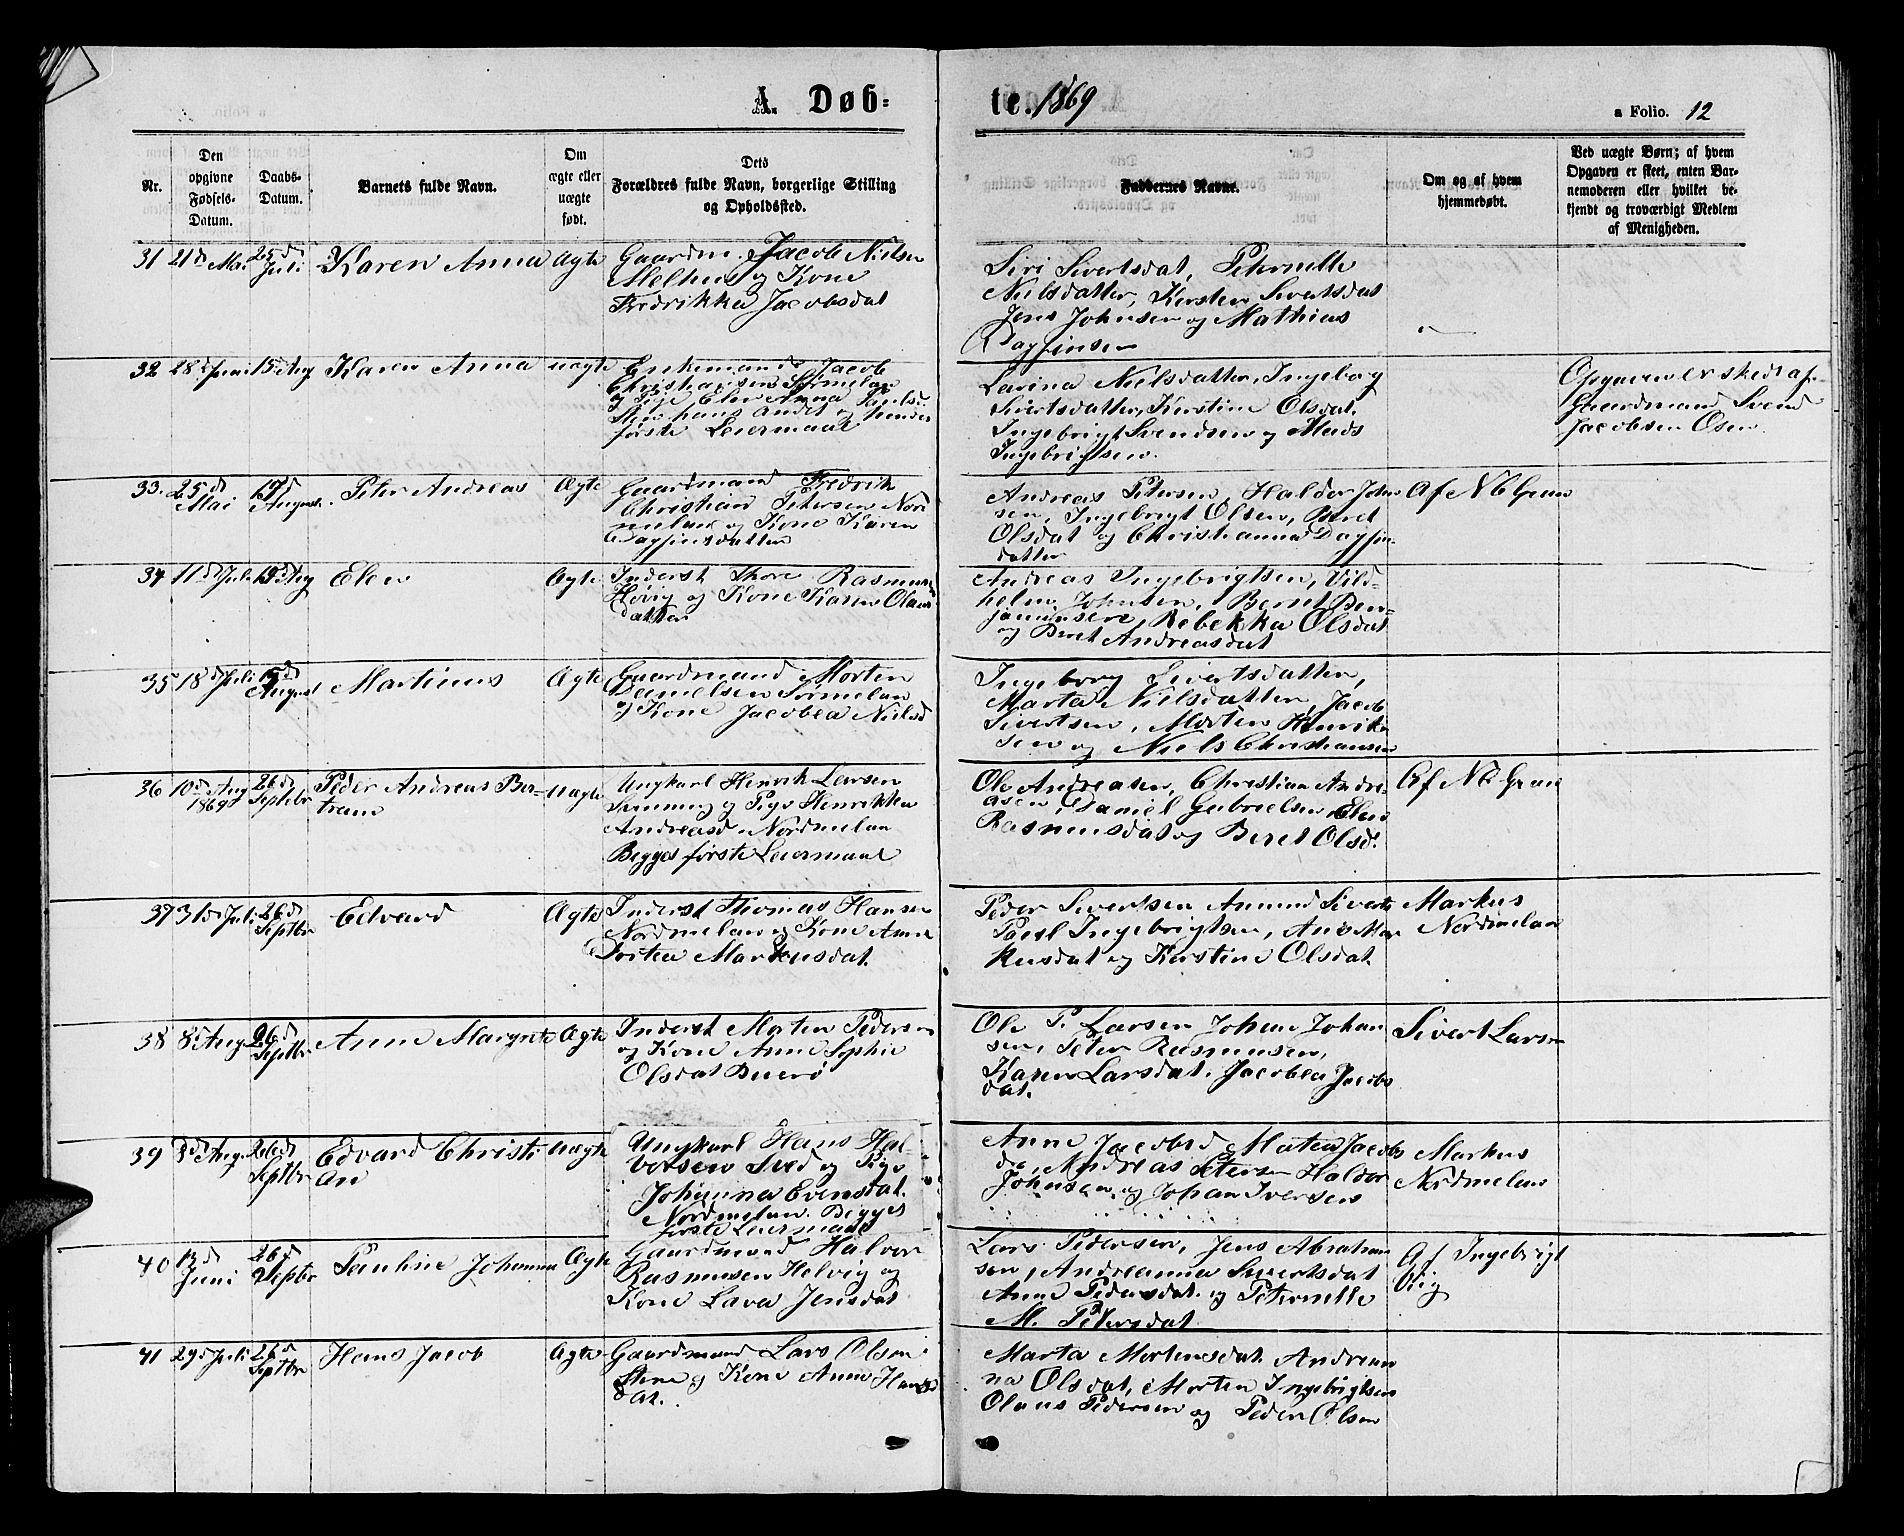 A. Døb=
te. 1869
a Folio. 12
Nr.
Den
opgivne
Fødsels-
Datum.
Daabs-
Datum.
Barnets fulde Navn.
Om
ægte eller
uægte
født.
Dets
Forældres fulde Navn, borgerlige Stilling
og Opholdssted.
Faddernes Navne.
Om og af hvem
hjemmedøbt.
Ved uægte Børn; af hvem
Opgaven er skeet, enten Bar-
nemoderen eller hvilket be-
kjendt og troværdigt Medlem
af Menigheden.
31 21d Mai 25d Juli Karen Anna Ægte
Gaardm. Jacob Nielsen
Melhus og Kone
Fredrikka Jacobsdat
Siri Sivertsdat, Peternelle
Nielsdatter, Kersten Sivertsdat
Jens Johnsen og Mathias
Dagfinsen
32 28d Juni 15d Aug Karen Anna uægte
Enkemand Jacob
Christiansen Sørmelan
og Pige Elen Anna Paulsd.
hans andet og hendes
første Leiermaal
Larina Nielsdatter, Ingeborg
Sivertsdatter, Kerstine Olsdat.
Ingebrigt Svendsen og Mads
Ingebrigtsen.
Opgaven er skedt af
Gaardmand Svend
Jacobsen Osen.
33. 25d Mai 19d August. Peter Andreas Ægte
Gaardmand Fredrik
Christian Petersen Nord
melan og Kone Karen
Dagfinsdatter
Andreas Petersen, Haldor John
sen, Ingebrigt Olsen, Beret
Olsdat og Christianna Dagfins
datter
Af N B Grun
34 11d Juli 15d Aug Elen Ægte
Inderst Thore Rasmus
Hevig og Kone Karen Olaus
datter
Andreas Ingebrigtsen, Vild-
helm Johnsen, Beret Ben-
jaminsen, Rebekka Olsdat
og Beret Andreasdat
35 18d Juli 15d August Martinus Ægte
Gaardmand Morten
Danielsen Sørmelan
og Kone Jacobea Nielsd
Ingeborg Sivertsdatter,
Marta Nielsdatter, Jacob
Sivertsen, Morten Henrik
sen og Niels Christiansen
36 10d Aug 1869 26d Septbr Peder Andreas Ber-
tram uægte
Ungkarl Henrik Larsen
og Pige Henrikka
Andreasd. Nordmelan
Begges første Leiermaal
Ole Andreasen, Christian Andre
asen, Daniel Gabrielsen, Elen
Rasmusdat og Beret Olsd.
Af N B Grun
37 31d Juli 26d Septbr Edvard Ægte
Inderst Thomas Hansen
Nordmelan og Kone Anne
Dortea Markusdat.
Peder Sivertsen Amund Siverts
Paul Ingebrigtsen, Ane Mar
kusdat og Kerstine Olsdat.
Markus
Nordmelan
38 8d Aug 26d Septbr Anne Margrete Ægte
Inderst Morten Pedersen
og Kone Anne Sophie
Olsdat Buerø
Ole P. Larsen Johan Johan
sen, Peter Rasmusen,
Karen Larsdat. Jacobea Jacobs
dat.
Sivert Larsen
39 3d Aug 26d Septbr Edvard Christi
an uægte
Ungkarl Hans Hal-
vorsen Sved og Pige
Johanna Evensdat.
Nordmelan. Begges
første Leiermaal
Anne Jacobsd, Maten Jacobs
d, Andreas Petersen Haldor
Johnsen og Johan Iversen
Markus
Nordmelan
40 13d Juni 26d Septbr Pauline Johanna Ægte
Gaardmand Halvor
Rasmusen Helvig og
Kone Lava Jensdat
Lars Pedersen, Jens Abraham
sen, Andreanna Sivertsdat
Anne Pedersdat. og Peternelle
M. Petersdat
Af Ingebrigt
Vig
41 29d Juli 26d Septbr Hans Jacob Ægte
Gaardmand Lars Olsen
Stene og Kone Anne Hans
dat.
Marta Mortensdat. Andrean
na Olsdat, Morten Ingebrigtsen
Olaus Pedersen og Peder Olsen